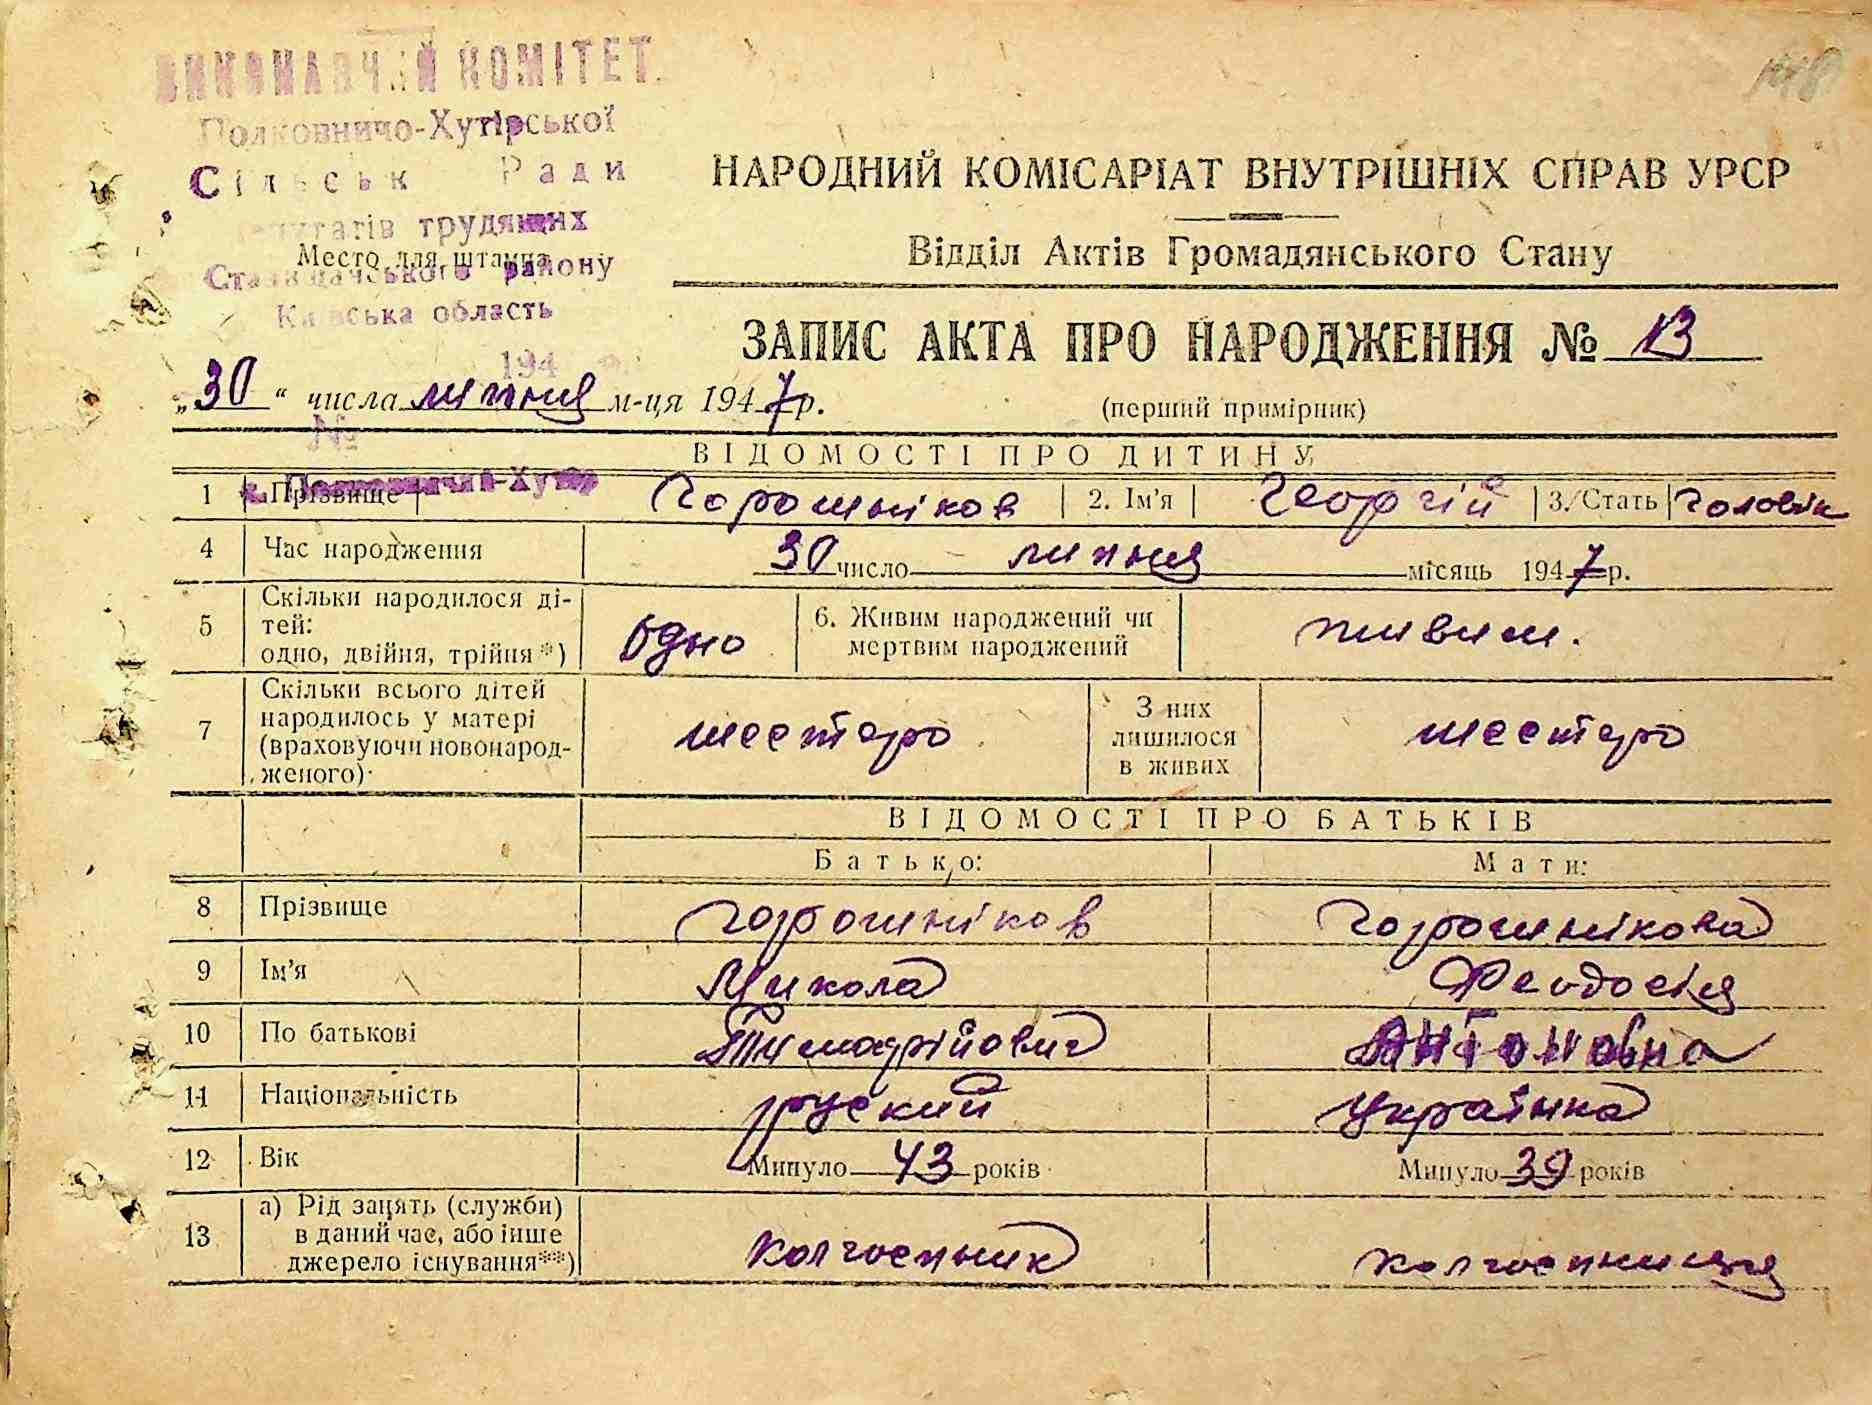 ВИКОНАВЧИЙ КОМІТЕТ
Полковничо-Хутірської
Сільськ Ради
депутатів трудящих
Место для штампа
Ставищанського району
Київська область
194
НАРОДНИЙ КОМІСАРІАТ ВНУТРІШНІХ СПРАВ УРСР
Відділ Актів Громадянського Стану
ЗАПИС АКТА ПРО НАРОДЖЕННЯ № 13
„30“ числа липня м-ця 1947 р.
(перший примірник)
№
ВІДОМОСТІ ПРО ДИТИНУ
с. Полковничий-Хутір
1 Прізвище Горошніков 2. Ім'я Георгій 3. Стать Чоловік
4 Час народження 30 число липня місяць 1947 р.
5 Скільки народилося ді-
тей:
одно, двійня, трійня*) одно
6. Живим народжений чи
мертвим народжений живим.
7 Скільки всього дітей
народилось у матері
(враховуючи новонарод-
женого) шестеро
З них
лишилося
в живих шестеро
ВІДОМОСТІ ПРО БАТЬКІВ
Батько: Мати:
8 Прізвище Горошніков Горошнікова
9 Ім'я Микола Феодосія
10 По батькові Тимофійович Антоновна
11 Національність руський Українка
12 Вік Минуло 43 років Минуло 39 років
13 а) Рід занять (служби)
в даний час, або інше
джерело існування**) колгоспник колгоспниця